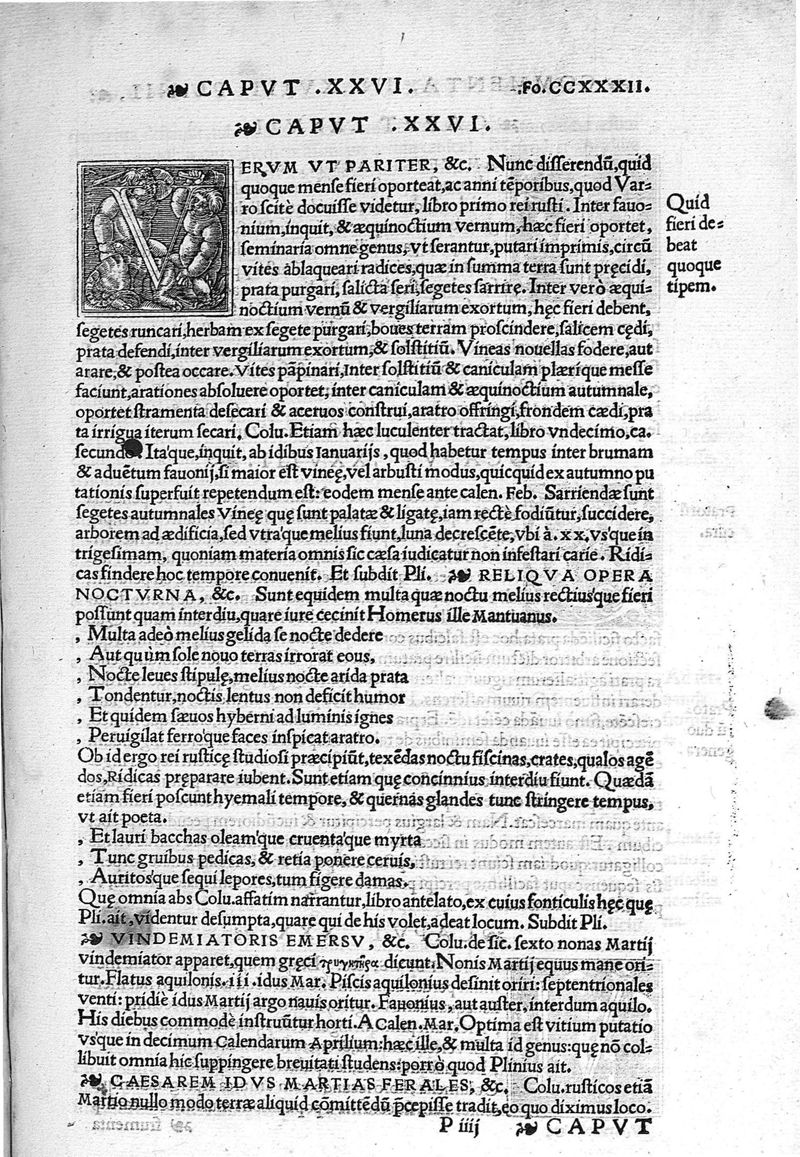 ❧ CAPVT .XXVI. .FO.CCXXXII.
❧ CAPVT .XXVI.
VERVM VT PARITER, &c. Nunc differendū, quid
quoque mense fieri oporteat, ac anni tēporibus, quod Var=
ro scitè docuisse videtur, libro primo rei rusti. Inter fauo=
nium, inquit, & æquinoctium vernum, hæc fieri oportet,
seminaria omne genus, vt serantur, putari imprimis, circū
vites ablaqueari radices, quæ in summa terra sunt pręcidi,
prata purgari, salicta seri, segetes sarrire. Inter verò æqui=
noctium vernū & vergiliarum exortum, hęc fieri debent,
segetes runcari, herbam ex segete purgari, boues terram proscindere, salicem cędi,
prata defendi, inter vergiliarum exortum, & solstitiū. Vineas nouellas fodere, aut
arare, & postea occare. Vites pāpinari, Inter solstitiū & caniculam plærique messe
faciunt, arationes absoluere oportet, inter caniculam & æquinoctium autumnale,
oportet stramenta desecari & aceruos construi, aratro offringi, frondem cædi, pra
ta irrigua iterum secari. Colu. Etiam hæc luculenter tractat, libro vndecimo, ca.
secundo Itaque, inquit, ab idibus Ianuarijs, quod habetur tempus inter brumam
& aduētum fauonij, si maior est vineę, vel arbusti modus, quicquid ex autumno pu
tationis superfuit repetendum est: eodem mense ante calen. Feb. Sarriendæ sunt
segetes autumnales Vineę quę sunt palatæ & ligatę, iam rectè fodiūtur, succidere,
arborem ad ædificia, sed vtra'que melius fiunt, luna decrescēte, vbi à .xx, vsque in
trigesimam, quoniam materia omnis sic cæsa iudicatur non infestari carie. Rīdi=
cas findere hoc tempore conuenit. Et subdit Pli. ❧ RELIQVA OPERA
NOCTVRNA, &c. Sunt equidem multa quæ noctu melius rectius'que fieri
possunt quam interdiu, quare iure cecinit Homerus ille Mantuanus.
, Multa adeò melius gelida se nocte dedere
, Aut quùm sole nouo terras irrorat eous,
, Nocte leues stipulę, melius nocte arida prata
, Tondentur, noctis lentus non deficit humor
, Et quidem sæuos hyberni ad luminis ignes
, Peruigilat ferro'que faces inspicat aratro.
Ob id ergo rei rusticę studiosi præcipiūt, texēdas noctu fiscinas, crates, qualos agē
dos, Ridicas pręparare iubent. Sunt etiam quę concinnius interdiu fiunt. Quædā
etiam fieri poscunt hyemali tempore, & quernas glandes tunc stringere tempus,
vt ait poeta.
, Et lauri bacchas oleam'que cruenta'que myrta
, Tunc gruibus pedicas, & retia ponere ceruis,
, Auritos'que sequi lepores, tum figere damas.
Quę omnia abs Colu. affatim narrantur, libro antelato, ex cuius fonticulis hęc quę
Pli. ait, videntur desumpta, quare qui de his volet, adeat locum. Subdit Pli.
❧ VINDEMIATORIS EMERSV, &c. Colu. de sic. sexto nonas Martij
vindemiator apparet, quem gręci τρυγητῆρα dicunt. Nonis Martij equus mane ori=
tur. Flatus aquilonis. iii. idus Mar. Piscis aquilonius desinit oriri: septentrionales
venti: pridiè idus Martij argo nauis oritur. Fauonius, aut auster, interdum aquilo.
His diebus commodè instruūtur horti. A Calen. Mar, Optima est vitium putatio
vsque in decimum Calendarum Aprilium: hæc ille, & multa id genus: quę nō col=
libuit omnia hic suppingere breuitati studens: porrò quod Plinius ait.
❧ CAESAREM IDVS MARTIAS FERALES, &c. Colu. rusticos etiā
Martio nullo modo terræ aliquid cōmittēdū pcepisse tradit, eo quo diximus loco.
P iiij ❧ CAPVT
Quid
fieri de=
beat
quoque
tipem.